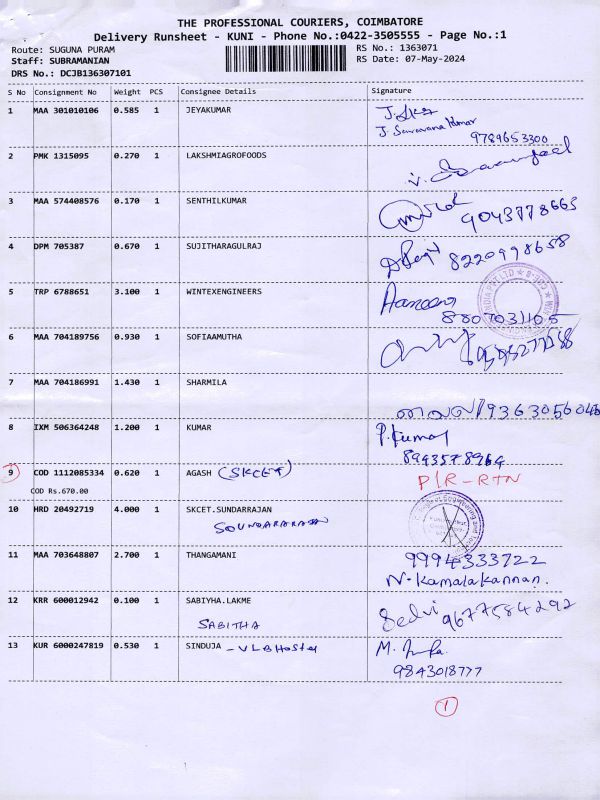 THE PROFESSIONAL COURIERS, COIMBATORE
Delivery Runsheet - KUNI - Phone No.:0422-3505555 - Page No.:1
Route: SUGUNA PURAM RS No.: 1363071
Staff: SUBRAMANIAN RS Date: 07-May-2024
DRS No.: DCJB136307101
S No Consignment No Weight PCS Consignee Details Signature
1 MAA 301010106 0.585 1 JEYAKUMAR
J. Saravana Kumar
9789653300
2 PMK 1315095 0.270 1 LAKSHMIAGROFOODS
3 MAA 574408576 0.170 1 SENTHILKUMAR
9043778663
4 DPM 705387 0.670 1 SUJITHARAGULRAJ
8220998658
5 TRP 6788651 3.100 1 WINTEXENGINEERS
8807031105
6 MAA 704189756 0.930 1 SOFIAAMUTHA
7 MAA 704186991 1.430 1 SHARMILA
8 IXM 506364248 1.200 1 KUMAR P. Kumar
8943578964
9 COD 1112085334 0.620 1 AGASH (SKCET) P/R-RTN
COD Rs.670.00
10 HRD 20492719 4.000 1 SKCET.SUNDARRAJAN
SOUNDARARAJAN
11 MAA 703648807 2.700 1 THANGAMANI 9994333722
N. Kamalakannan.
12 KRR 600012942 0.100 1 SABIYHA.LAKME Selvi 9677584292
SABITHA
13 KUR 6000247819 0.530 1 SINDUJA - VLB Hostel
9843018777
1